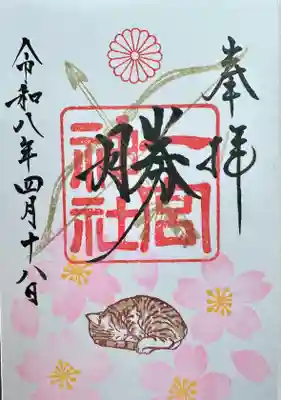 奉拝
勝
神社
令和八年四月十八日